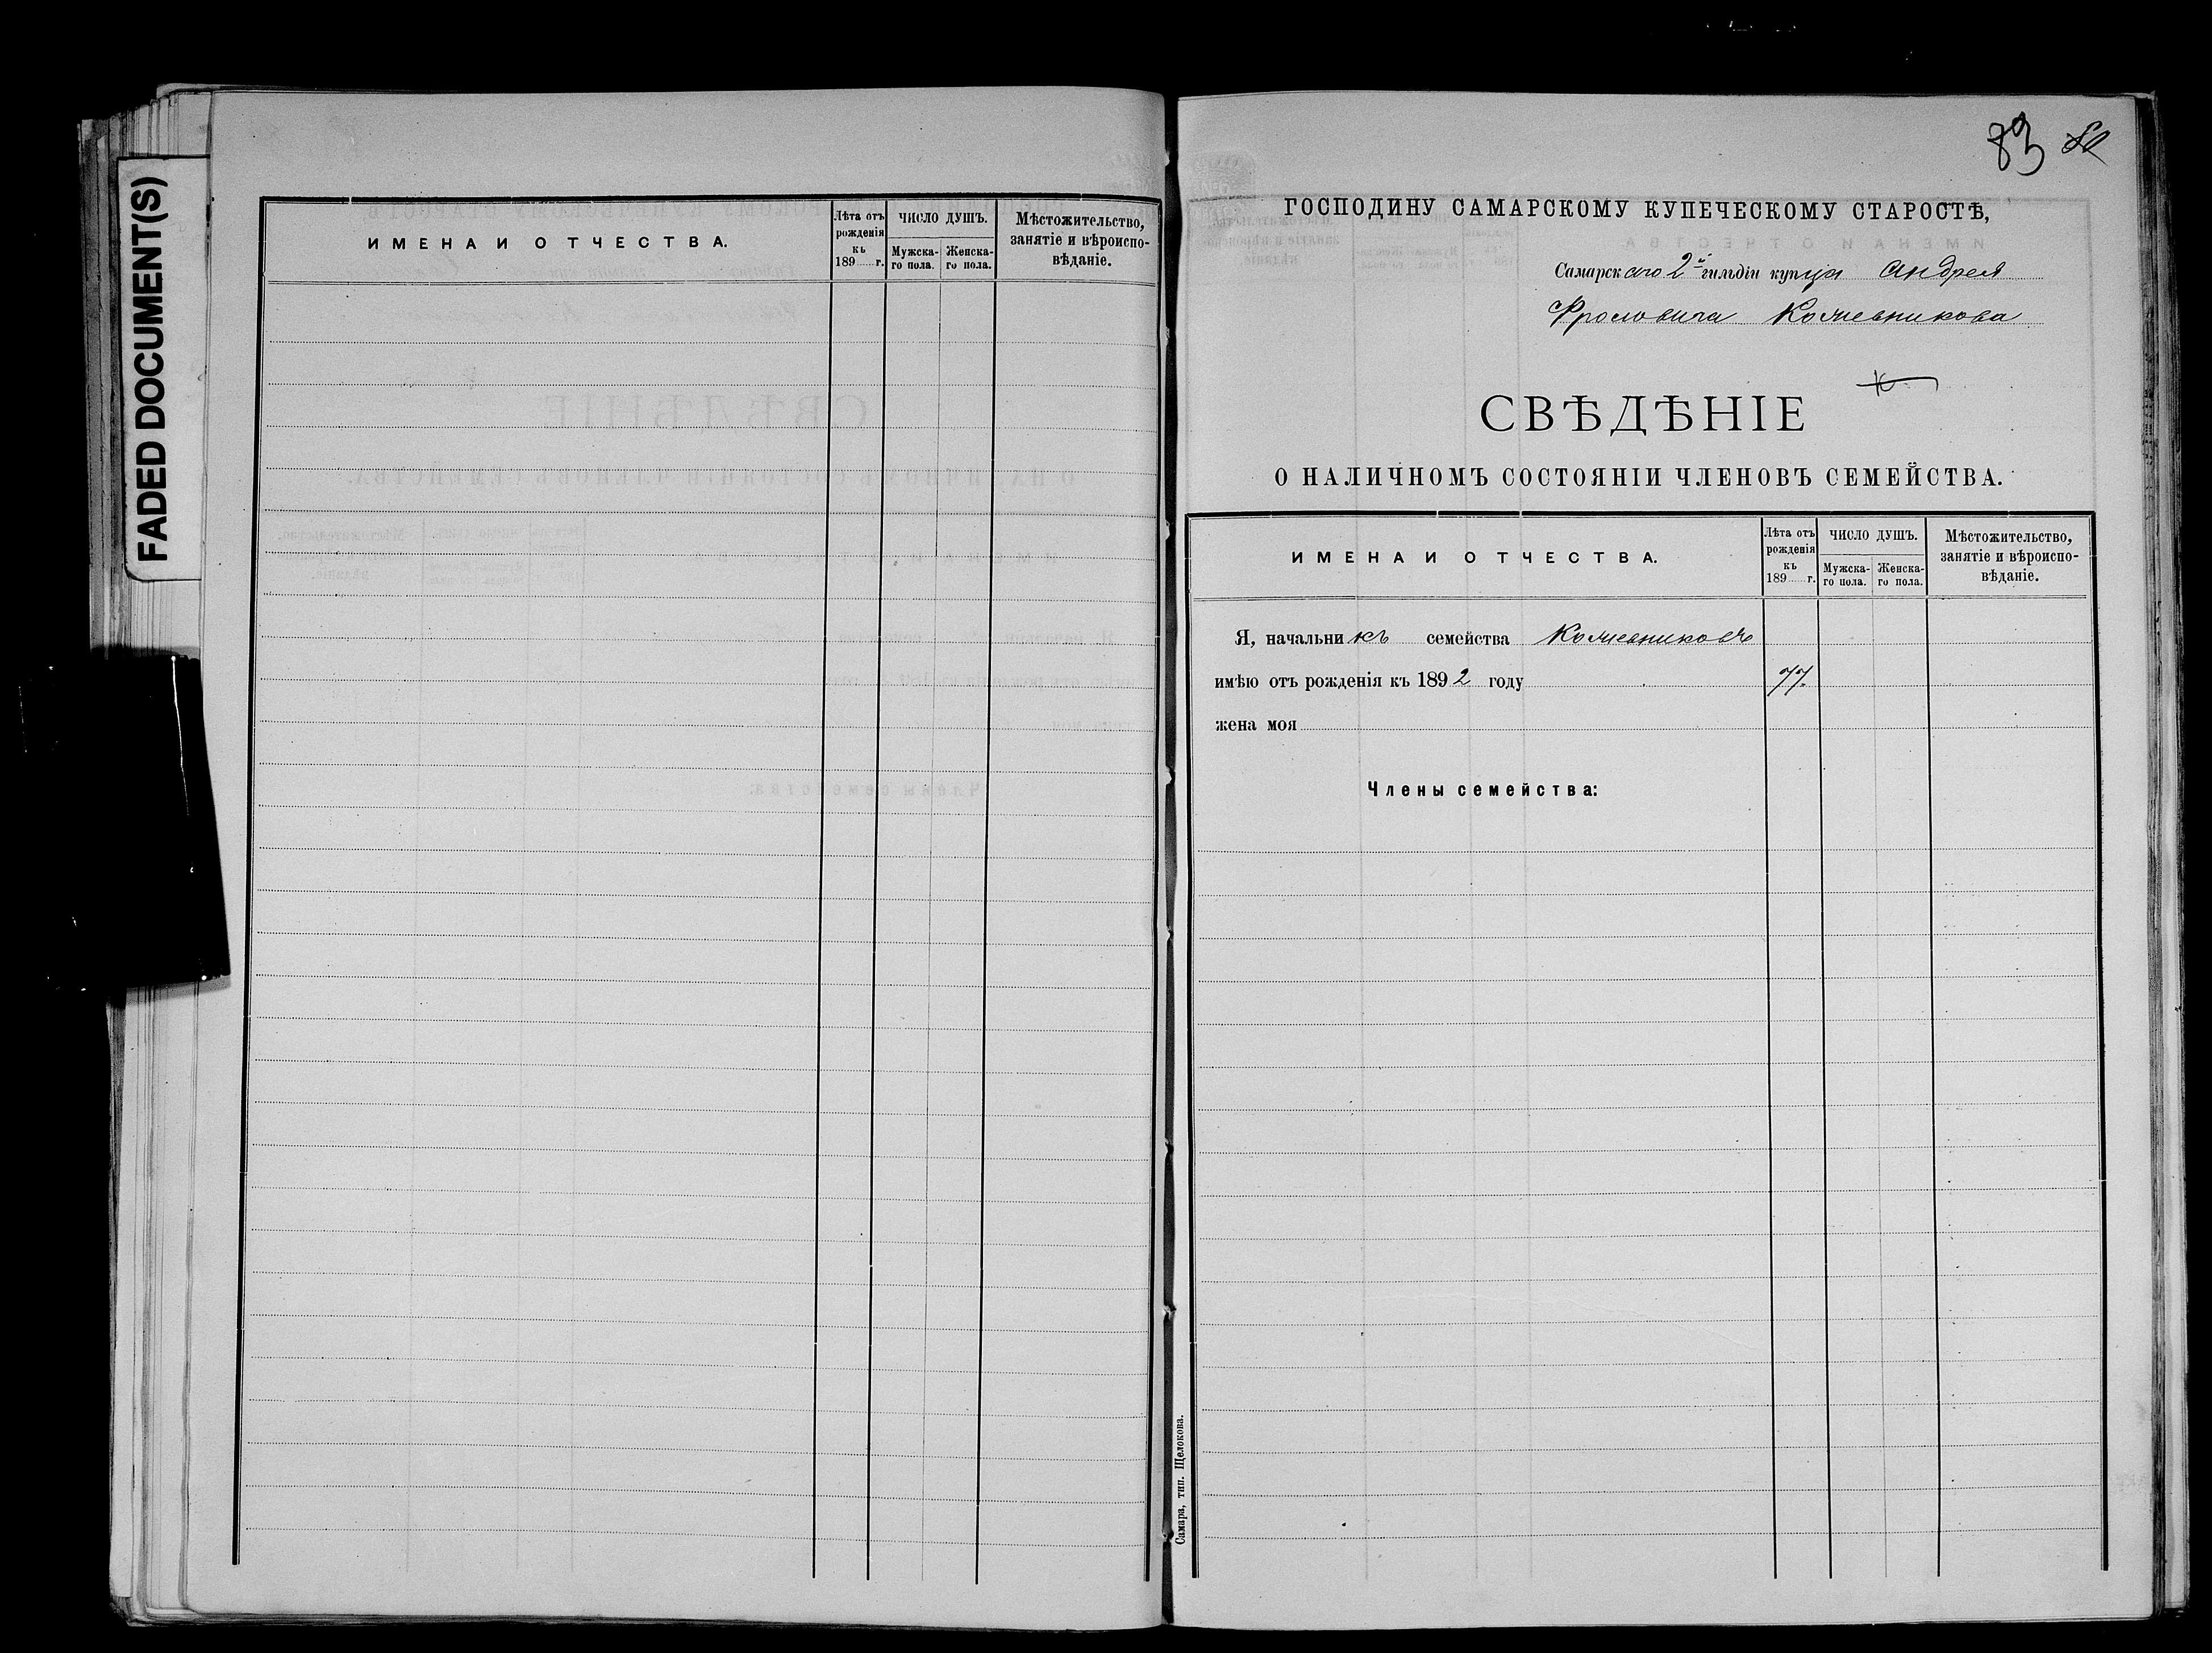 FADED DOCUMENT(S)
ИМЕНА И ОТЧЕСТВА.
Лѣта отъ рожденія къ 189 г.
ЧИСЛО ДУШЪ.
Мужска-го пола.
Женска-го пола.
Мѣстожительство, занятіе и вѣроиспо-вѣданіе.
83
ГОСПОДИНУ САМАРСКОМУ КУПЕЧЕСКОМУ СТАРОСТѢ,
Самарскаго 2й гильдіи купца Андрея
Фроловича Кожевникова
СВѢДѢНІЕ
О НАЛИЧНОМЪ СОСТОЯНІИ ЧЛЕНОВЪ СЕМЕЙСТВА.
ИМЕНА И ОТЧЕСТВА.
Лѣта отъ рожденія къ 189 г.
ЧИСЛО ДУШЪ.
Мужска-го пола.
Женска-го пола.
Мѣстожительство, занятіе и вѣроиспо-вѣданіе.
Я, начальникъ семейства Кожевниковъ
имѣю отъ рожденія къ 1892 году 77.
жена моя
Члены семейства:
Самара, тип. Щелокова.